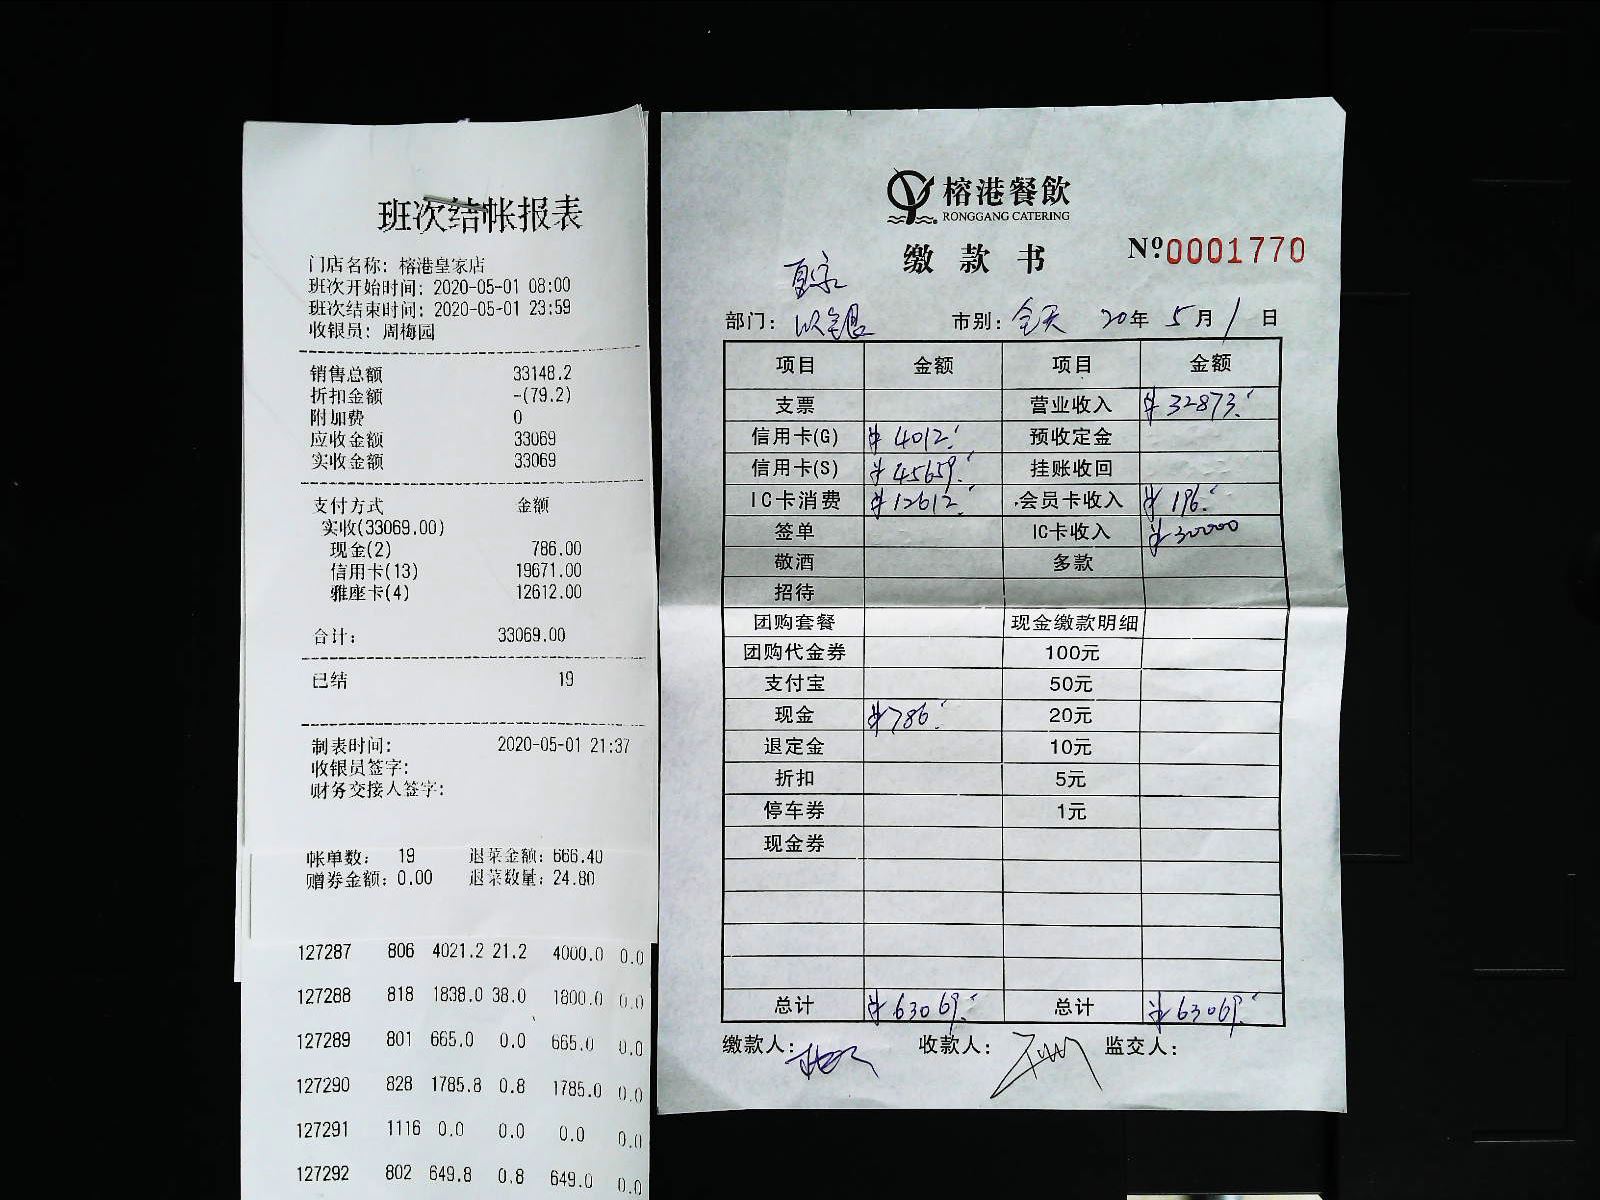 班次结帐报表
门店名称: 榕港皇家店
班次开始时间: 2020-05-01 08:00
班次结束时间: 2020-05-01 23:59
收银员: 周梅园
销售总额 33148.2
折扣金额 -(79.2)
附加费 0
应收金额 33069
实收金额 33069
支付方式 金额
实收(33069.00)
现金(2) 786.00
信用卡(13) 19671.00
雅座卡(4) 12612.00
合计: 33069.00
已结 19
制表时间: 2020-05-01 21:37
收银员签字:
财务交接人签字:
帐单数: 19 退菜金额: 666.40
赠券金额: 0.00 退菜数量: 24.80
127287 806 4021.2 21.2 4000.0 0.0
127288 818 1838.0 38.0 1800.0 0.0
127289 801 665.0 0.0 665.0 0.0
127290 828 1785.8 0.8 1785.0 0.0
127291 1116 0.0 0.0 0.0 0.0
127292 802 649.8 0.8 649.0 0.0
榕港餐飲
RONGGANG CATERING
缴款书 Nº0001770
皇家
部门: 收银 市别: 全天 20年 5月 1日
项目 金额 项目 金额
支票 营业收入 ¥32873.
信用卡(G) ¥4012. 预收定金
信用卡(S) ¥45659. 挂账收回
IC卡消费 ¥12612. 会员卡收入 ¥196.
签单 IC卡收入 ¥30000
敬酒 多款
招待
团购套餐 现金缴款明细
团购代金券 100元
支付宝 50元
现金 ¥786. 20元
退定金 10元
折扣 5元
停车券 1元
现金券
总计 ¥63069. 总计 ¥63069.
缴款人: 收款人: 监交人: